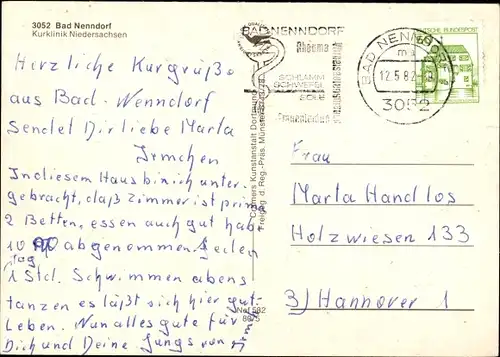 3052 Bad Nenndorf
Kurklinik Niedersachsen
Herzliche Kurgrüße
aus Bad-Nenndorf
sendet Dir liebe Marta
Irmchen
In diesem Haus bin ich unter-
gebracht, daß zimmer ist prima
2 Betten, essen auch gut hab
10 abgenommen. Jeden
Tag
1 Std. Schwimmen abens
tanzen es läßt sich hier gut
Leben. Nun alles gute für
Dich und Deine Jungs von
Cramers Kunstanstalt Dortmund
Freigeg. d. Reg.-Präs. Münster
BAD NENNDORF
Rheuma
SCHLAMM
SCHWEFEL
SOLE
Frauenleiden
BAD NENNDORF
12.5.82
3052
DEUTSCHE BUNDESPOST
Frau
Marta Handlos
Holzwiesen 133
3) Hannover 1